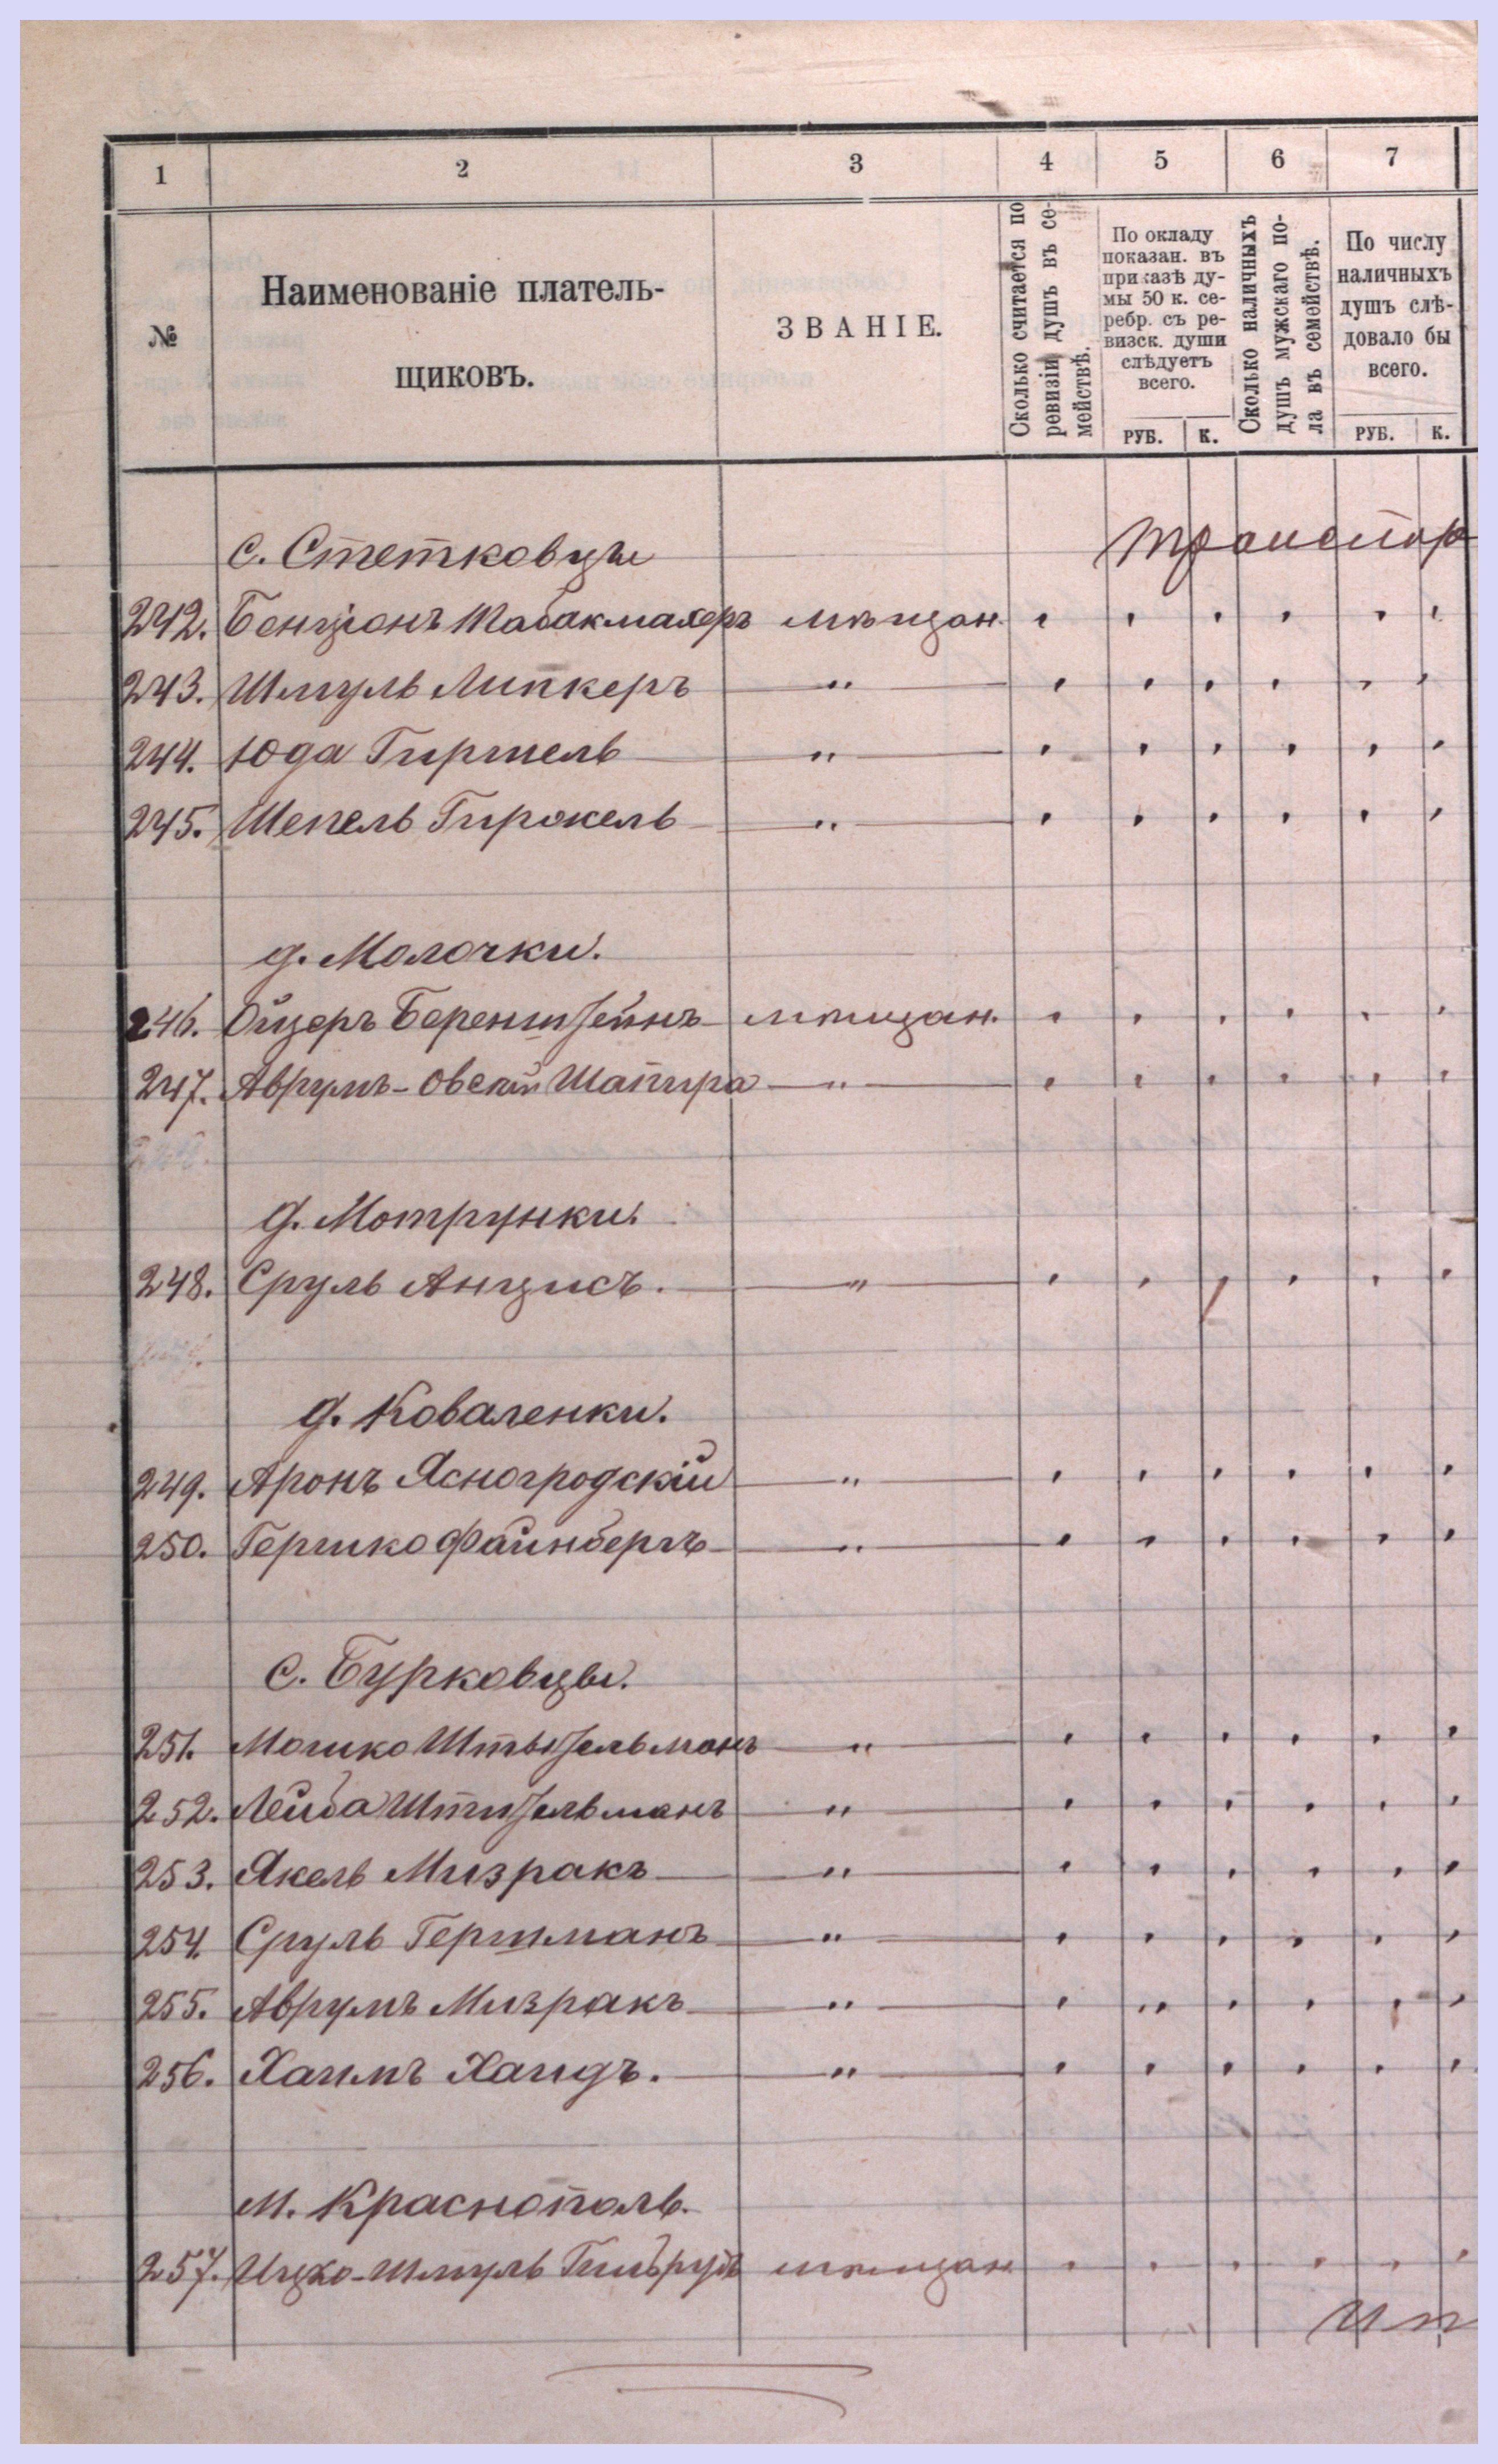 1 2 3 4 5 6 7
№
Наименованіе платель-
щиковъ.
ЗВАНІЕ.
Сколько считается по
ревизіи душъ въ се-
мействѣ.
По окладу
показан. въ
приказѣ ду-
мы 50 к. се-
ребр. съ ре-
визск. души
слѣдуетъ
всего.
РУБ. К.
Сколько наличныхъ
душъ мужскаго по-
ла въ семействѣ.
По числу
наличныхъ
душъ слѣ-
довало бы
всего.
РУБ. К.
Транспор
с. Стетковцы
242. Бенціонъ Табакмахеръ мѣщан.
243. Шмуль Липкеръ — " —
244. Юда Гиршель — " —
245. Шепель — " —
д. Молочки.
246. Ойзеръ Беренштейнъ мѣщан.
247. Аврумъ- Шапира — " —
д. Мотрунки.
248. Сруль Анцисъ. — " —
д. Коваленки.
249. Аронъ Ясногродскій — " —
250. Гершко Файнбергъ — " —
с. Бурковцы.
251. Мошко — " —
252. Лейба Штифельманъ — " —
253. Якель Мизракъ — " —
254. Сруль Гершманъ — " —
255. Аврумъ Мизракъ — " —
256. Хаимъ Хаидъ. — " —
м. Краснополь.
257. Ицко-Шмуль мѣщан.
Ит